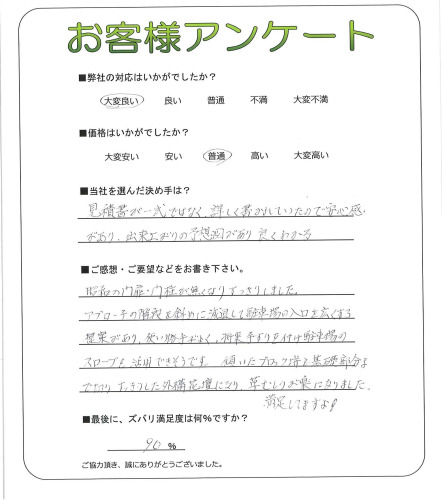 お客様アンケート
■弊社の対応はいかがでしたか？
大変良い 良い 普通 不満 大変不満
■価格はいかがでしたか？
大変安い 安い 普通 高い 大変高い
■当社を選んだ決め手は？
見積書が一式ではなく、詳しく書かれていたので安心感
があり、出来上がりの予想図があり良くわかる
■ご感想・ご要望などをお書き下さい。
昭和の門扉・門柱が無くなりすっきりしました。
アプローチの階段を斜めに減退して駐車場の入口を広くする
提案があり、使い勝手がよく、将来手すりを付け駐車場の
スロープも活用できそうです。傾いたブロック塀も基礎部分
すっきりした外構花壇になり、草むしりが楽になりました。
満足してますよ
■最後に、ズバリ満足度は何%ですか？
90 %
ご協力頂き、誠にありがとうございました。